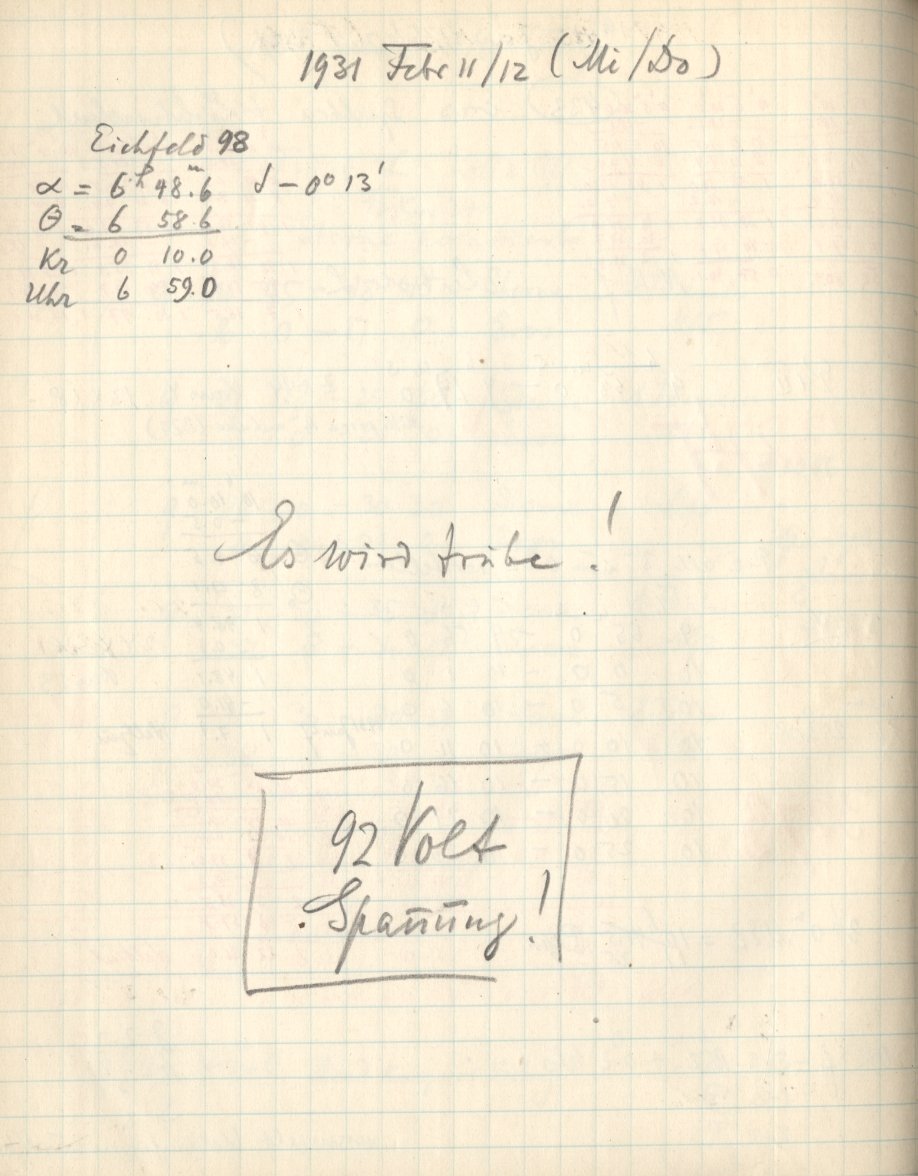 1931 Febr 11/12 (Mi/Do)
Eichfeld 98
α = 6ʰ 48.ᵐ6 δ – 0° 13'
Θ = 6 58.6
Kr 0 10.0
Uhr 6 59.0
Es wird trübe!
92 Volt
Spannung!